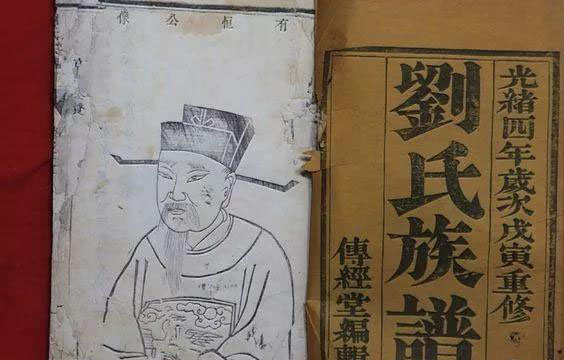 有恒公像
光緒四年歲次戊寅重修
劉氏族譜
傳經堂編輯